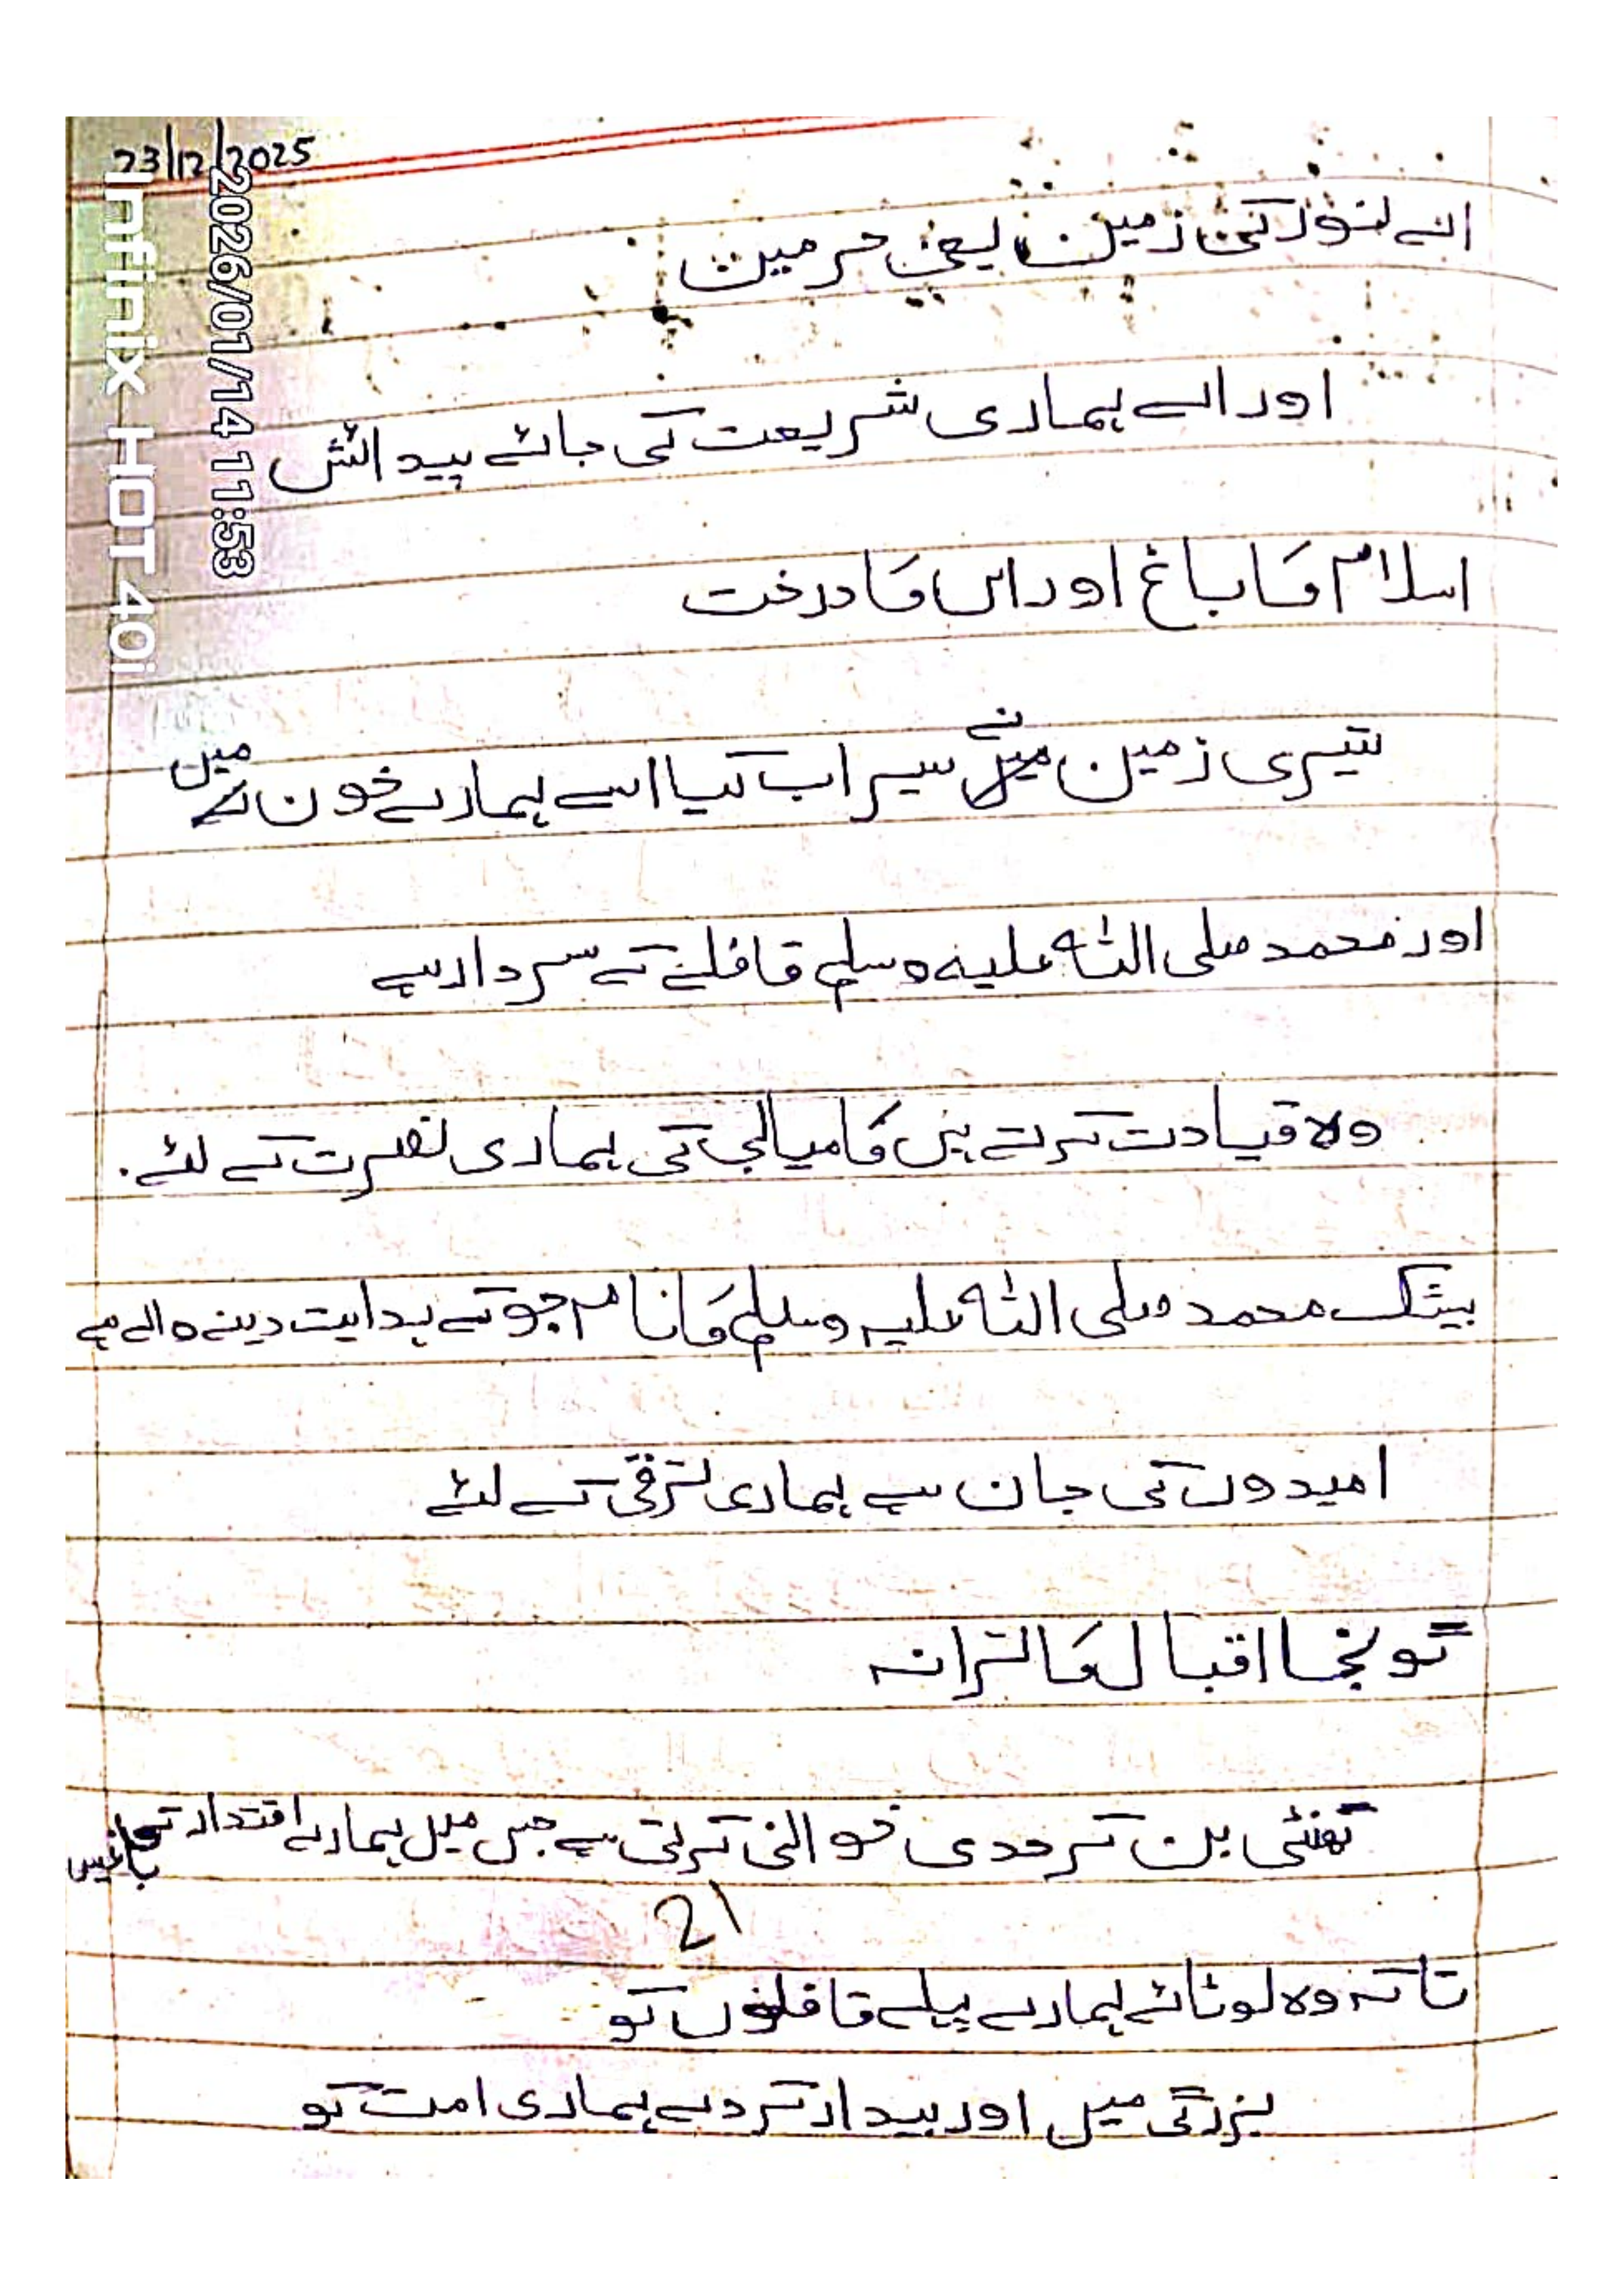 23/12/2025
2026/01/14 11:53
Infinix HOT 40i
اے نور کی زمین یعنی حرمین
اور اے ہماری شریعت کی جائے پیدائش
اسلام کا باغ اور اس کا درخت
تیری زمین نے سیراب کیا اسے ہمارے خون میں
اور محمد صلی اللہ علیہ وسلم قافلے کے سردار ہے
وہ قیادت کرتے ہیں کامیابی کی ہماری نصرت کے لئے.
بیشک محمد صلی اللہ علیہ وسلم کا نام جو کے ہدایت دینے والے ہے
امیدوں کی جان ہے ہماری ترقی کے لئے
گونجا اقبال کا ترانہ
گھنٹی بن کر حدی خوانی کرتی ہے جس میں ہمارے اقتدار کی
21
تا کہ وہ لوٹائے ہمارے پہلے قافلوں کو
بزرگی میں اور بیدار کر دے ہماری امت کو